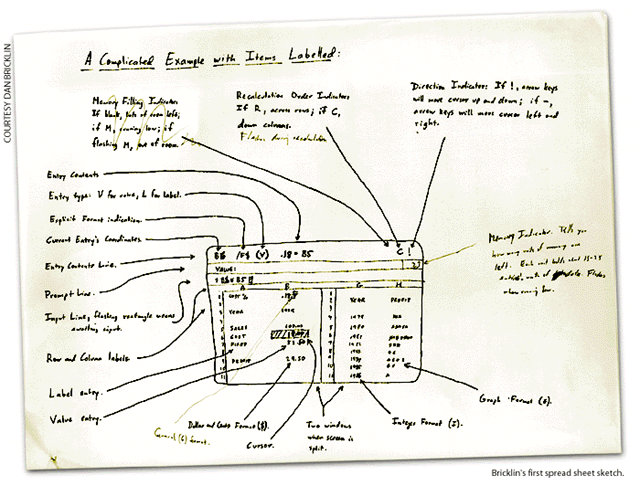 COURTESY DAN BRICKLIN
A Complicated Example with Items Labelled:
Memory Filling Indicator:
If blank, lots of room left;
if M, running low; if
flashing M, out of room.
Recalculation Order Indicator:
If R, across rows; if C,
down columns.
Flashes during recalculation
Direction Indicator: If !, arrow keys
will move cursor up and down; if –,
arrow keys will move cursor left and
right.
Entry Contents
Entry type: V for value, L for label.
Explicit Format indication.
Current Entry's Coordinates.
Entry Contents Line.
Prompt Line.
Input Line, flashing rectangle means
awaiting input.
Row and Column labels.
Label entry.
Value entry.
/F$ (V) .18*B5 C !
VALUE:
A B G H
COST % YEAR PROFIT
YEAR
SALES 100.00
COST
PROFIT
29.50
Memory Indicator. Tells you
how many units of memory are
left.
when running low.
General (G) format.
Dollar and Cents Format ($).
Cursor.
Two windows
when screen is
split.
Integer Format (I).
Graph Format (*).
Bricklin's first spread sheet sketch.